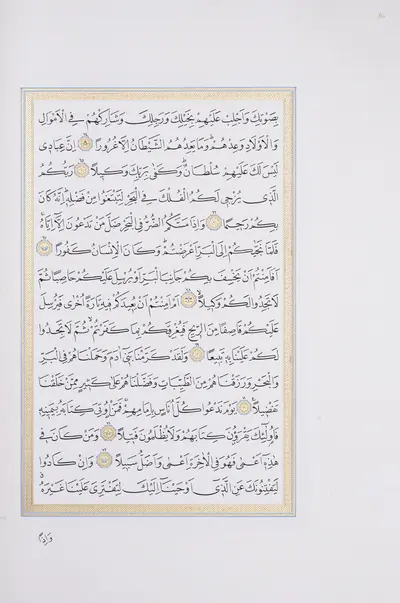 بِصَوْتِكَ وَاَجْلِبْ عَلَيْهِمْ بِخَيْلِكَ وَرَجِلِكَ وَشَارِكْهُمْ فِي الْاَمْوَالِ
وَالْاَوْلَادِ وَعِدْهُمْ وَمَا يَعِدُهُمُ الشَّيْطَانُ اِلَّا غُرُورًا اِنَّ عِبَادِي
لَيْسَ لَكَ عَلَيْهِمْ سُلْطَانٌ وَكَفٰى بِرَبِّكَ وَكِيلًا رَبُّكُمُ
الَّذِي يُزْجِي لَكُمُ الْفُلْكَ فِي الْبَحْرِ لِتَبْتَغُوا مِنْ فَضْلِهِ اِنَّهُ كَانَ
بِكُمْ رَحِيمًا وَاِذَا مَسَّكُمُ الضُّرُّ فِي الْبَحْرِ ضَلَّ مَنْ تَدْعُونَ اِلَّا اِيَّاهُ
فَلَمَّا نَجّٰيكُمْ اِلَى الْبَرِّ اَعْرَضْتُمْ وَكَانَ الْاِنْسَانُ كَفُورًا
اَفَاَمِنْتُمْ اَنْ يَخْسِفَ بِكُمْ جَانِبَ الْبَرِّ اَوْ يُرْسِلَ عَلَيْكُمْ حَاصِبًا ثُمَّ
لَا تَجِدُوا لَكُمْ وَكِيلًا اَمْ اَمِنْتُمْ اَنْ يُعِيدَكُمْ فِيهِ تَارَةً اُخْرٰى فَيُرْسِلَ
عَلَيْكُمْ قَاصِفًا مِنَ الرِّيحِ فَيُغْرِقَكُمْ بِمَا كَفَرْتُمْ ثُمَّ لَا تَجِدُوا
لَكُمْ عَلَيْنَا بِهِ تَبِيعًا وَلَقَدْ كَرَّمْنَا بَنِي اٰدَمَ وَحَمَلْنَاهُمْ فِي الْبَرِّ
وَالْبَحْرِ وَرَزَقْنَاهُمْ مِنَ الطَّيِّبَاتِ وَفَضَّلْنَاهُمْ عَلٰى كَثِيرٍ مِمَّنْ خَلَقْنَا
تَفْضِيلًا يَوْمَ نَدْعُوا كُلَّ اُنَاسٍ بِاِمَامِهِمْ فَمَنْ اُوتِيَ كِتَابَهُ بِيَمِينِهِ
فَاُولٰئِكَ يَقْرَؤُنَ كِتَابَهُمْ وَلَا يُظْلَمُونَ فَتِيلًا وَمَنْ كَانَ فِي
هٰذِهِ اَعْمٰى فَهُوَ فِي الْاٰخِرَةِ اَعْمٰى وَاَضَلُّ سَبِيلًا وَاِنْ كَادُوا
لَيَفْتِنُونَكَ عَنِ الَّذِي اَوْحَيْنَا اِلَيْكَ لِتَفْتَرِيَ عَلَيْنَا غَيْرَهُ
وَاِذًا